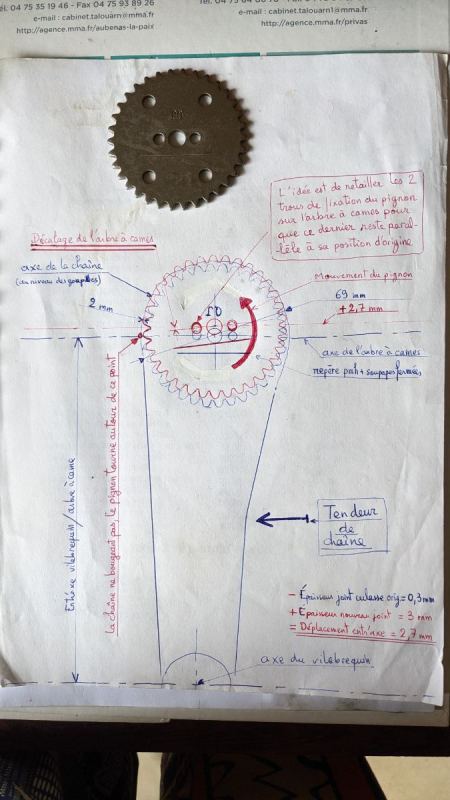 él. 04 75 35 19 46 - Fax 04 75 93 89 26
e-mail : cabinet.talouarn@mma.fr
http://agence.mma.fr/aubenas-la-paix
e-mail : cabinet.talouarn1@mma.fr
http://agence.mma.fr/privas
L'idée est de retailler les 2
trous de fixation du pignon
sur l'arbre à cames pour
que ce dernier reste paral-
lèle à sa position d'origine
Décalage de l'arbre à cames
axe de la chaîne
(au niveau des goupilles)
Mouvement du pignon
2 mm
69 mm
+2,7 mm
axe de l'arbre à cames
repère pmh + soupapes fermées
Entr'axe vilebrequin/arbre à came
la chaîne ne bougeant pas, le pignon tourne autour de ce point
Tendeur
de
chaîne
- Épaisseur joint culasse orig = 0,3 mm
+ Épaisseur nouveau joint = 3 mm
= Déplacement entr'axe = 2,7 mm
axe du vilebrequin